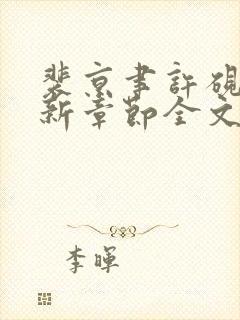 裴京聿許硯
新章節全文
李暉